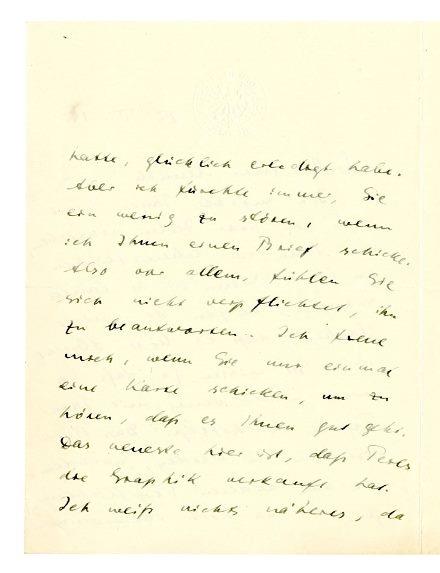 hatte, glücklich erledigt habe.
Aber ich fürchte immer, Sie
ein wenig zu stören, wenn
ich Ihnen einen Brief schicke.
Also vor allem, fühlen Sie
sich nicht verpflichtet, ihn
zu beantworten. Ich freue
mich, wenn Sie mir einmal
eine Karte schicken, um zu
hören, daß es Ihnen gut geht.
Das neueste hier ist, daß
die Graphik verkauft hat.
Ich weiß nichts näheres, da